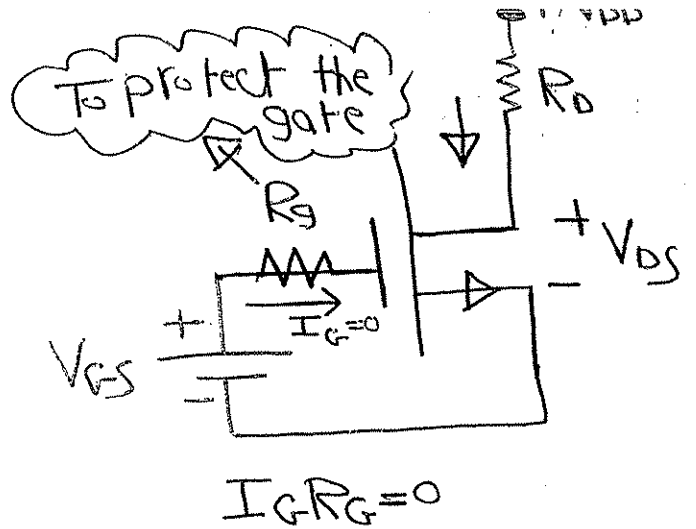 To protect the
gate
RD
Rg
+
VDS
-
IG=0
+
VGS
-
IGRG=0